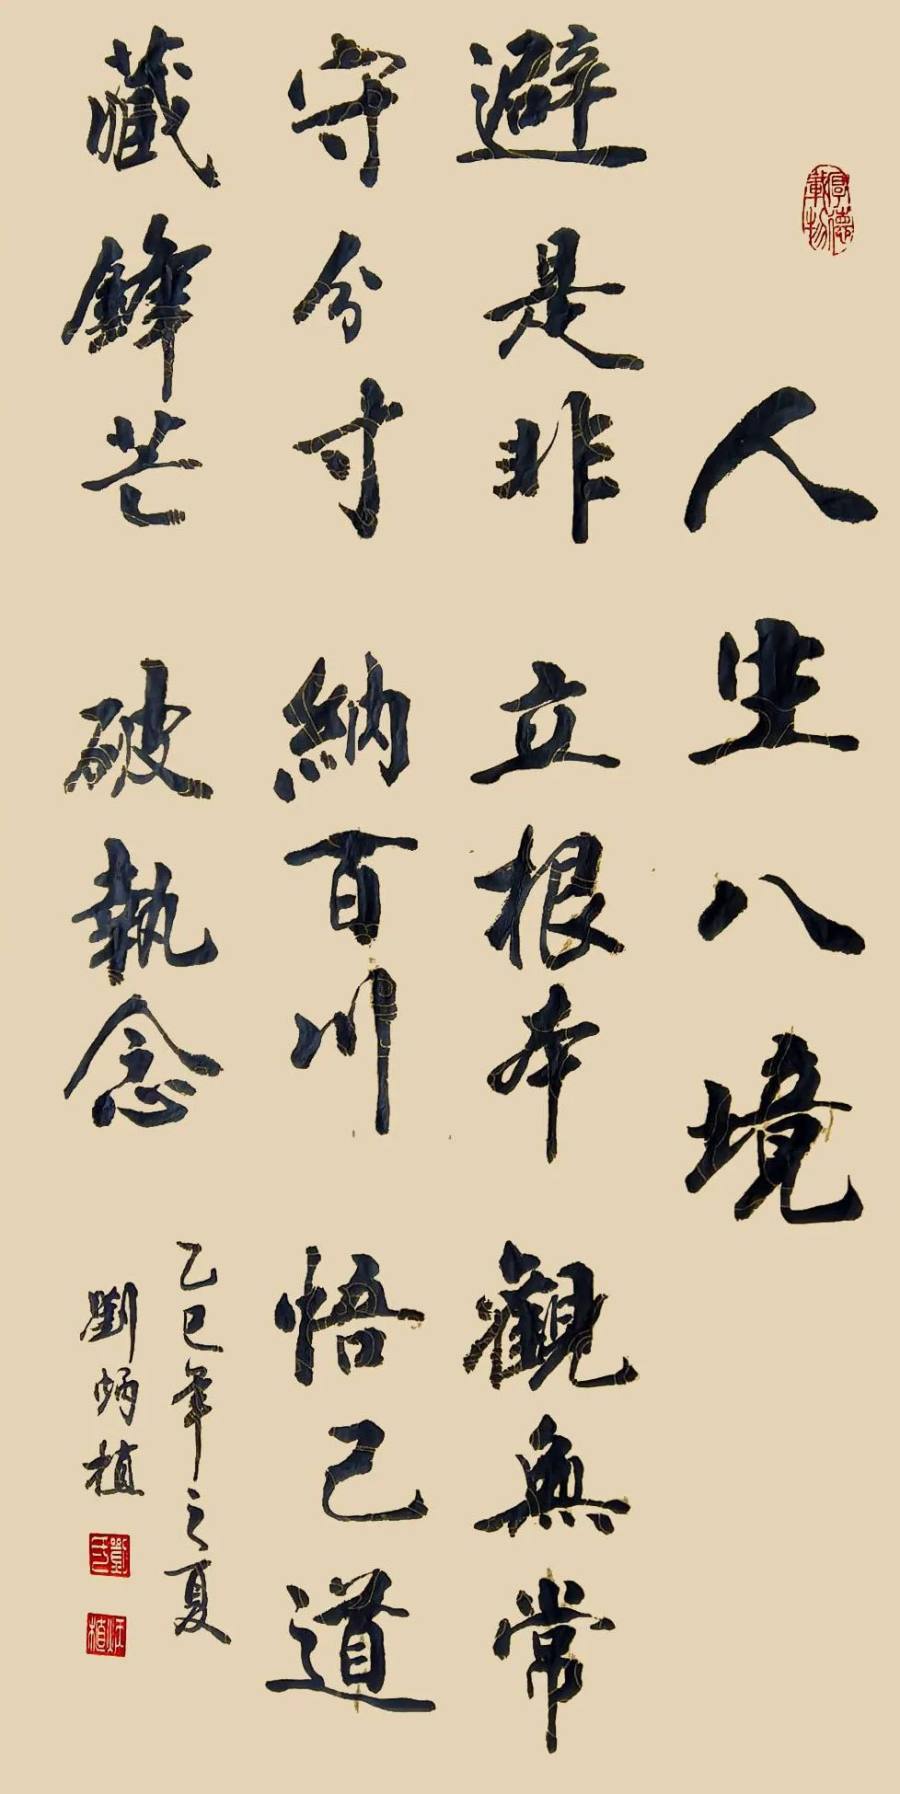 厚德載物
人生八境
避是非 立根本 觀無常
守分寸 納百川 悟己道
藏鋒芒 破執念
乙巳年之夏
劉炳植
炳植